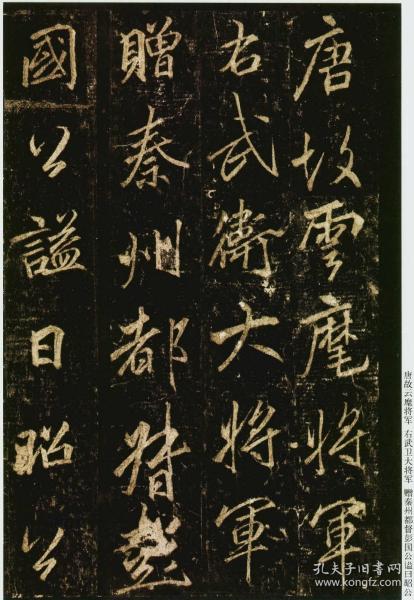 唐故雲麾將軍
右武衛大將軍
贈秦州都督彭
國公謚曰昭公
唐故云麾将军 右武卫大将军 赠秦州都督彭国公谥曰昭公
孔夫子旧书网
www.kongfz.com